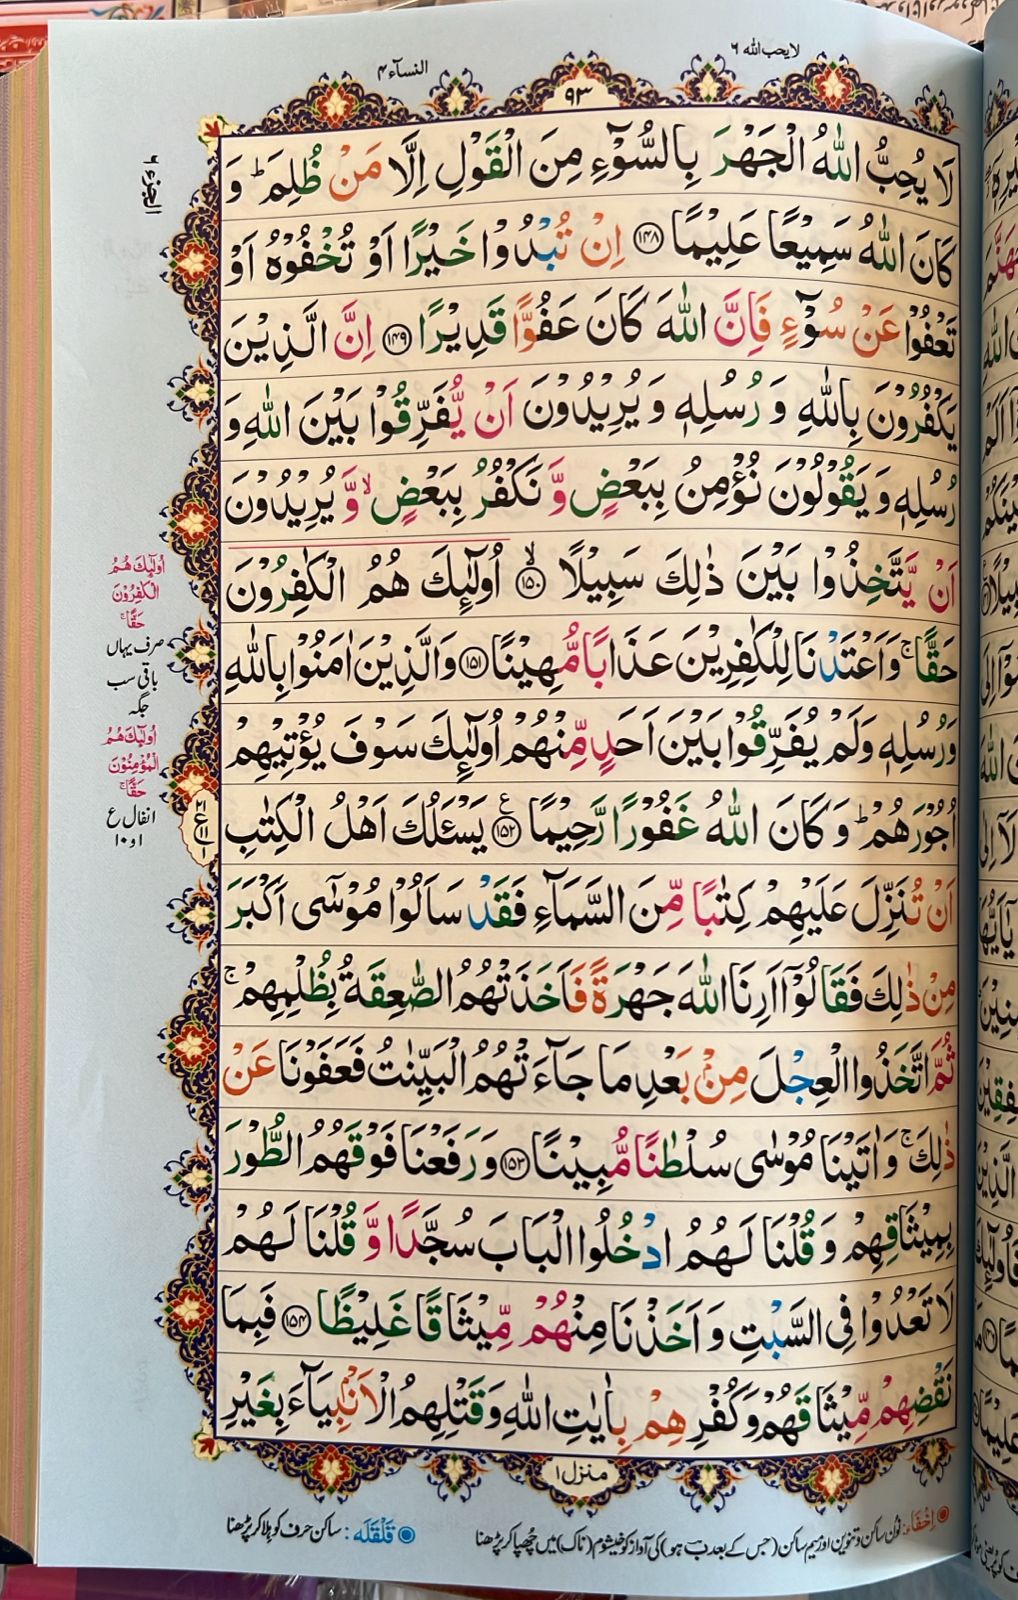 لا يحب الله ٦
النسآء ٤
٩٣
الجزء ٦
لَا يُحِبُّ اللّٰهُ الْجَهْرَ بِالسُّوْٓءِ مِنَ الْقَوْلِ اِلَّا مَنْ ظُلِمَ ؕ وَ
كَانَ اللّٰهُ سَمِيْعًا عَلِيْمًا ﴿۱۴۸﴾ اِنْ تُبْدُوْا خَيْرًا اَوْ تُخْفُوْهُ اَوْ
تَعْفُوْا عَنْ سُوْٓءٍ فَاِنَّ اللّٰهَ كَانَ عَفُوًّا قَدِيْرًا ﴿۱۴۹﴾ اِنَّ الَّذِيْنَ
يَكْفُرُوْنَ بِاللّٰهِ وَ رُسُلِهٖ وَ يُرِيْدُوْنَ اَنْ يُّفَرِّقُوْا بَيْنَ اللّٰهِ وَ
رُسُلِهٖ وَ يَقُوْلُوْنَ نُؤْمِنُ بِبَعْضٍ وَّ نَكْفُرُ بِبَعْضٍ ۙ وَّ يُرِيْدُوْنَ
اَنْ يَّتَّخِذُوْا بَيْنَ ذٰلِكَ سَبِيْلًا ﴿۱۵۰﴾ۙ اُولٰٓئِكَ هُمُ الْكٰفِرُوْنَ
حَقًّا ۚ وَاَعْتَدْنَا لِلْكٰفِرِيْنَ عَذَابًا مُّهِيْنًا ﴿۱۵۱﴾ وَالَّذِيْنَ اٰمَنُوْا بِاللّٰهِ
وَرُسُلِهٖ وَلَمْ يُفَرِّقُوْا بَيْنَ اَحَدٍ مِّنْهُمْ اُولٰٓئِكَ سَوْفَ يُؤْتِيْهِمْ
اُجُوْرَهُمْ ؕ وَ كَانَ اللّٰهُ غَفُوْرًا رَّحِيْمًا ﴿۱۵۲﴾ۧ يَسْـَٔلُكَ اَهْلُ الْكِتٰبِ
اَنْ تُنَزِّلَ عَلَيْهِمْ كِتٰبًا مِّنَ السَّمَآءِ فَقَدْ سَاَلُوْا مُوْسٰٓى اَكْبَرَ
مِنْ ذٰلِكَ فَقَالُوْٓا اَرِنَا اللّٰهَ جَهْرَةً فَاَخَذَتْهُمُ الصّٰعِقَةُ بِظُلْمِهِمْ ۚ
ثُمَّ اتَّخَذُوا الْعِجْلَ مِنْۢ بَعْدِ مَا جَآءَتْهُمُ الْبَيِّنٰتُ فَعَفَوْنَا عَنْ
ذٰلِكَ ۚ وَاٰتَيْنَا مُوْسٰى سُلْطٰنًا مُّبِيْنًا ﴿۱۵۳﴾ وَرَفَعْنَا فَوْقَهُمُ الطُّوْرَ
بِمِيْثَاقِهِمْ وَ قُلْنَا لَهُمُ ادْخُلُوا الْبَابَ سُجَّدًا وَّ قُلْنَا لَهُمْ
لَا تَعْدُوْا فِى السَّبْتِ وَ اَخَذْنَا مِنْهُمْ مِّيْثَاقًا غَلِيْظًا ﴿۱۵۴﴾ فَبِمَا
نَقْضِهِمْ مِّيْثَاقَهُمْ وَكُفْرِهِمْ بِاٰيٰتِ اللّٰهِ وَقَتْلِهِمُ الْاَنْۢبِيَآءَ بِغَيْرِ
اُولٰٓئِكَ هُمُ
الْكٰفِرُوْنَ
حَقًّا ۚ
صرف یہاں
باقی سب
جگہ
اُولٰٓئِكَ هُمُ
الْمُؤْمِنُوْنَ
حَقًّا ۚ
انفال ع
او ١٠
منزل ١
اِخْفَاء: نون ساکن و تنوین اور میم ساکن (جس کے بعد ب ہو) کی آواز کو خیشوم (ناک) میں چھپا کر پڑھنا
قَلْقَلَه: ساکن حرف کو ہلا کر پڑھنا